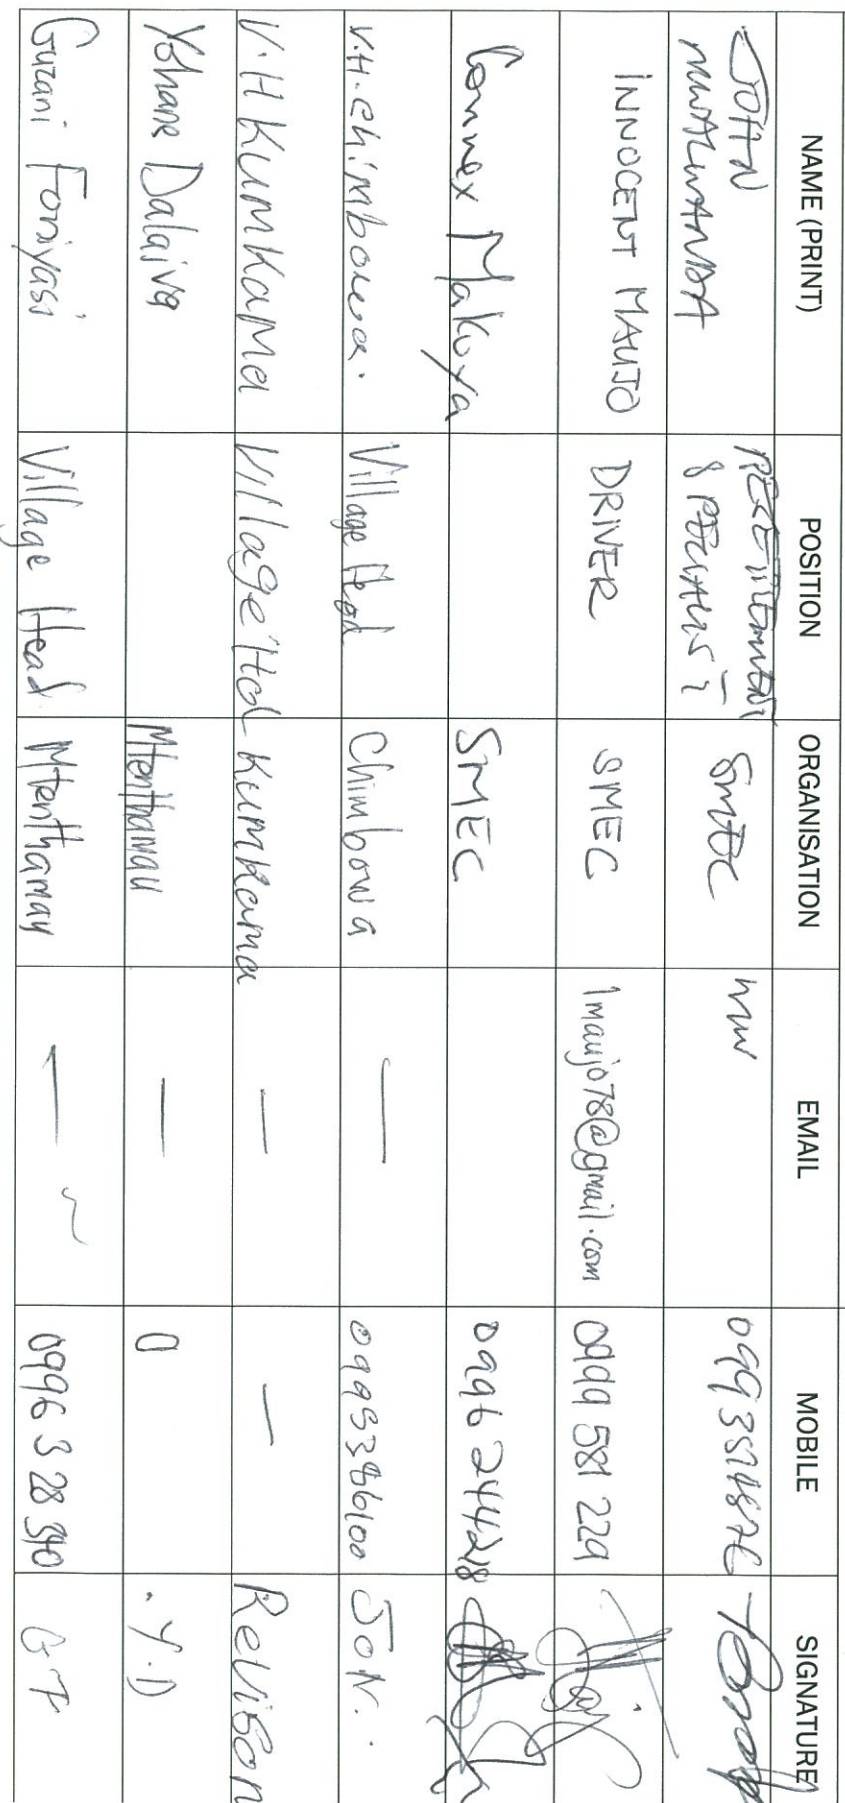 NAME (PRINT) POSITION ORGANISATION EMAIL MOBILE SIGNATURE
JOHN SMEC MW
INNOCENT MAUJO DRIVER SMEC 1maujo78@gmail.com 0999 581 229
Connex Makuya SMEC 0996 244218
V.H. Chimbowa. Village Head Chimbowa — 0995386100 JON.
V.H KUMKAMA Village Hd Kumkama — — Relison
Yohane Dalaiva Mtenthamau — 0 .Y.D
Guzani Foniyasi Village Head Mtenthamau — 0996 328 340 G F